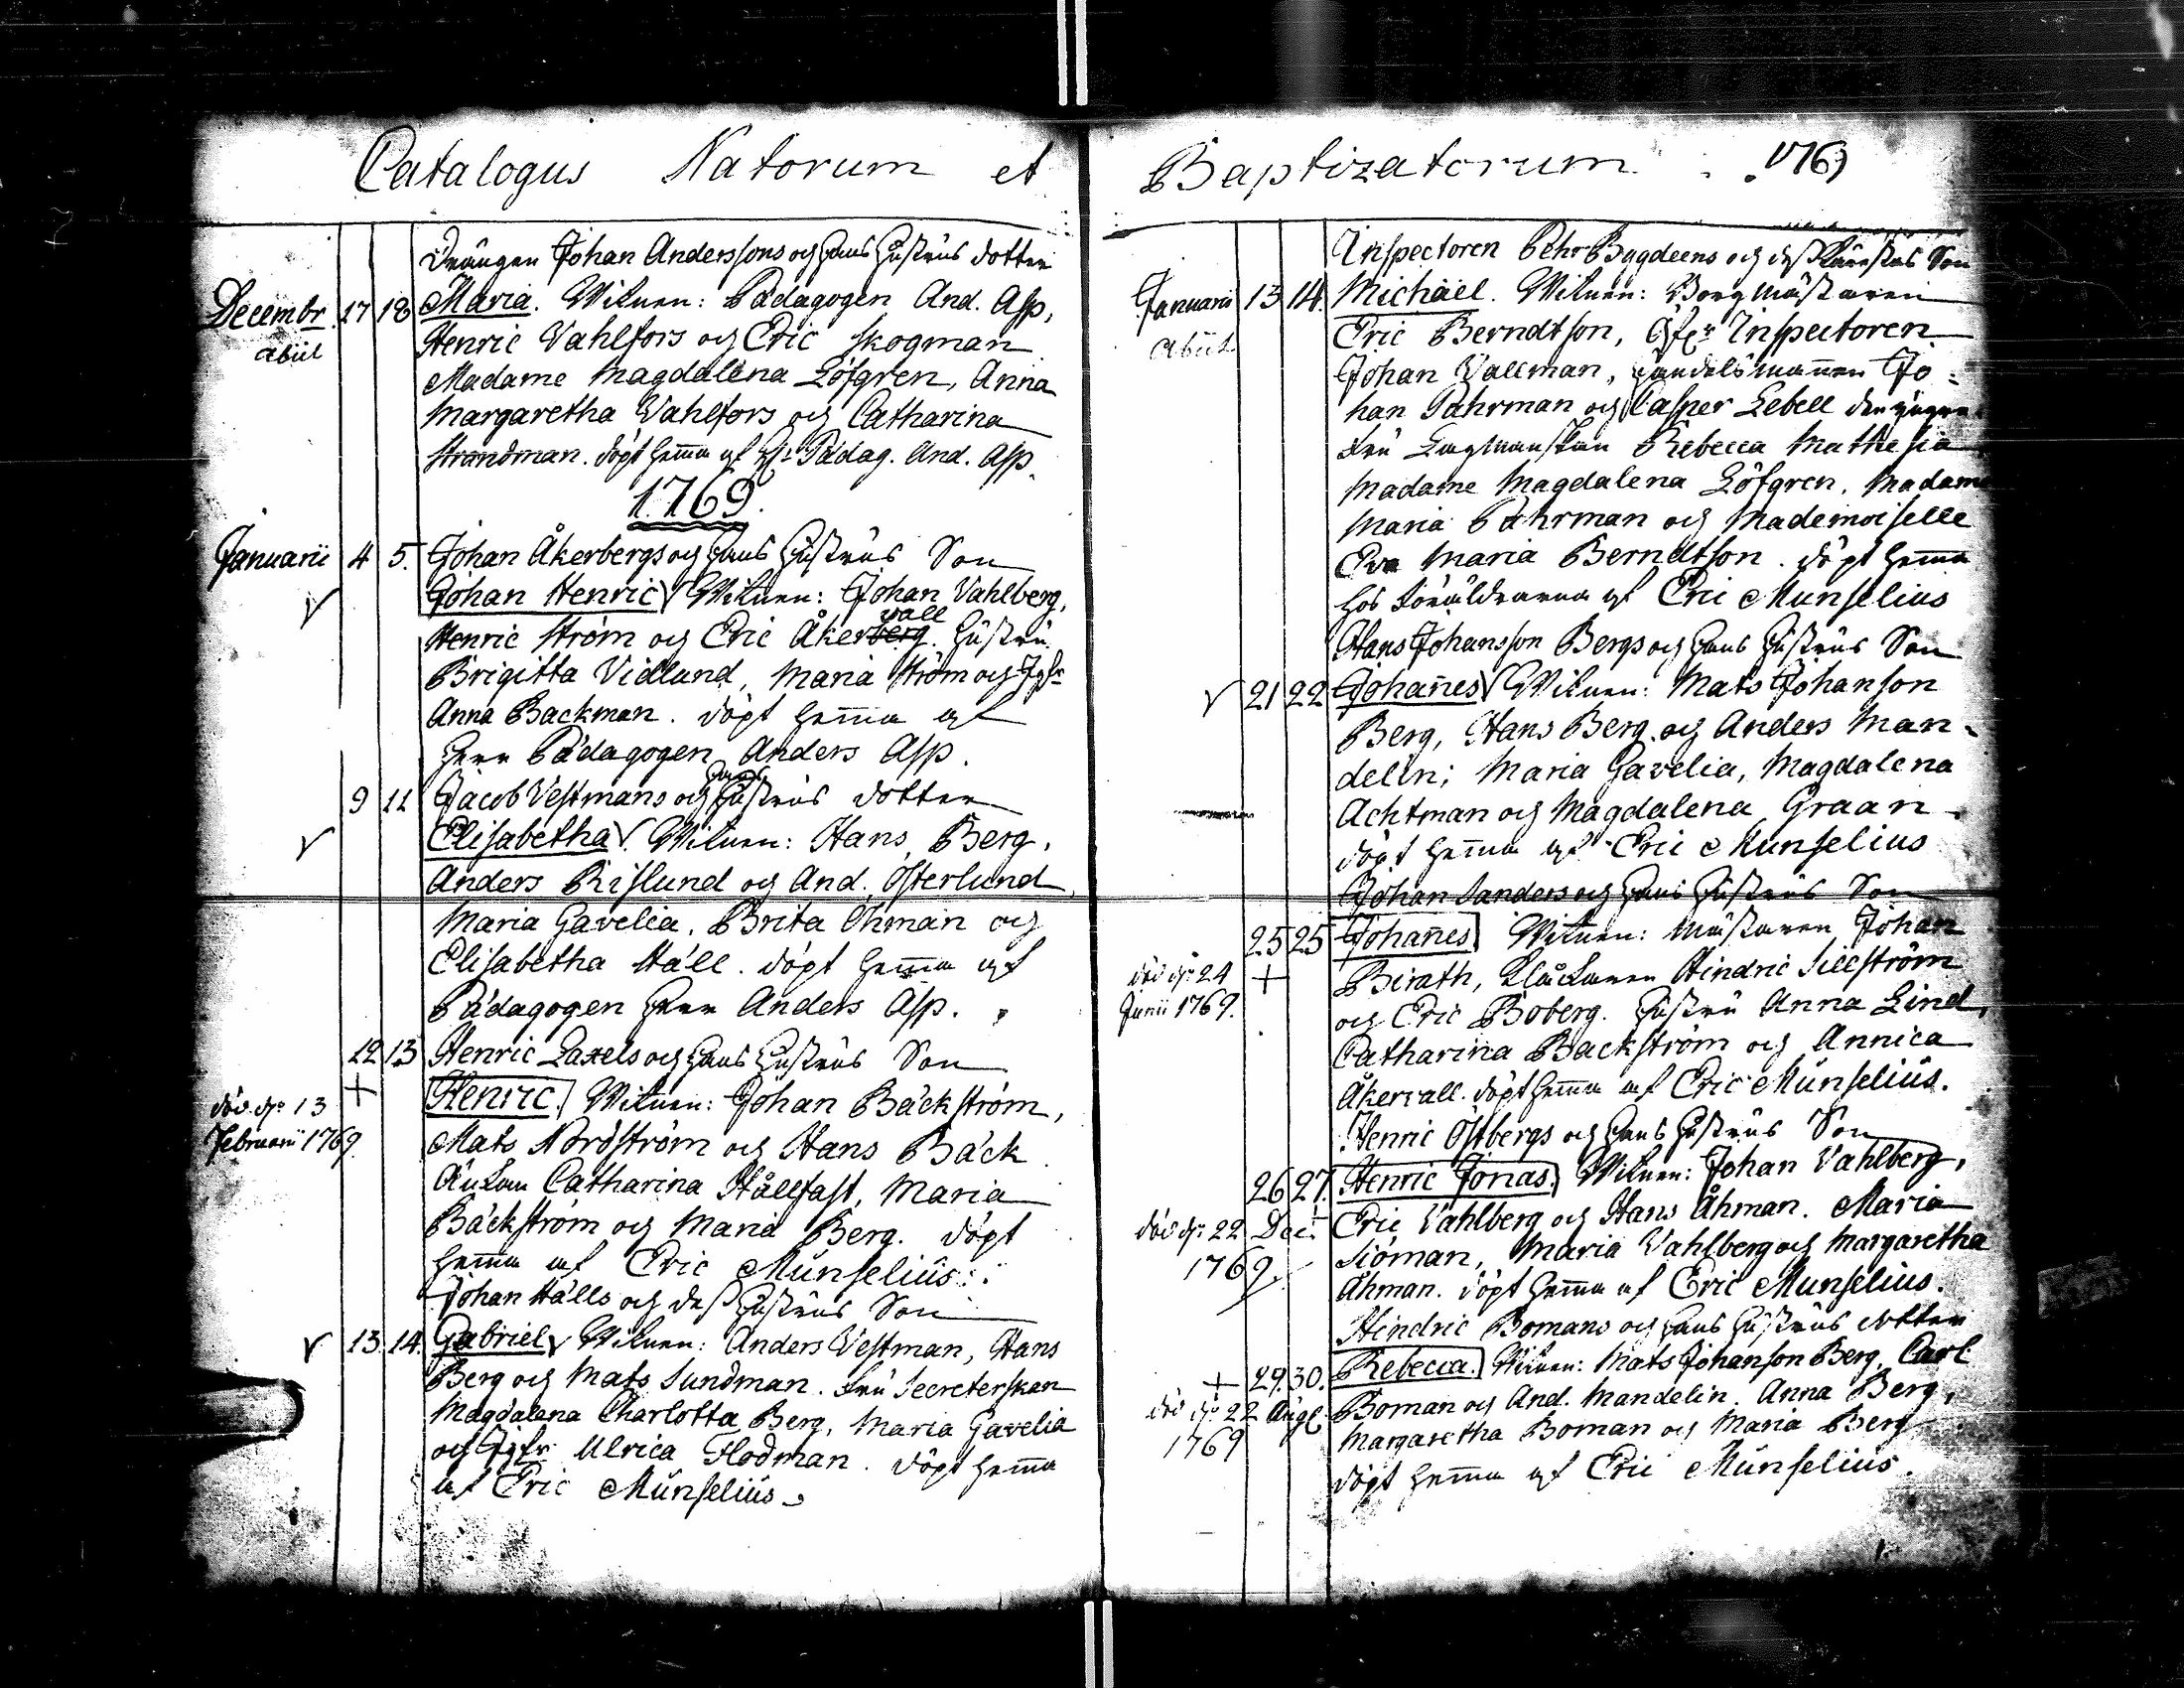 Catalogus Natorum et
Drängen Johan Anderssons och hans hustrus dotter
Decembr. 17 18 Maria. Witnen: Pädagogen And. Asp,
abiit Henric Vahlfors och Eric Skogman
Madame Magdalena Löfgren, Anna
Margaretha Vahlfors och Catharina
Strandman. döpt hemma af Hr Pädag. And. Asp.
1769.
Januarii 4 5. Johan Åkerbergs och hans hustrus Son
Johan Henric Witnen: Johan Vahlberg,
vall
Henric Ström och Eric Åkerberg. hustru
Brigitta Vidlund, Maria Ström och Jgfr
Anna Backman. döpt hemma af
Herr Pädagogen Anders Asp.
hans
9 11 Jacob Vestmans och hustrus dotter
Elisabetha. Witnen: Hans Berg,
Anders Rislund och And. Österlund,
Maria Gavelia, Brita Öhman och
Elisabetha Häll. döpt hemma af
Pädagogen Herr Anders Asp.
12 13 Henric Laxels och hans hustrus Son
död dn 13 + Henric. Witnen: Johan Bäckström,
Februarii 1769. Mats Nordström och Hans Bäck.
Änkan Catharina Hållfast, Maria
Bäckström och Maria Berg. döpt
hemma af Eric Munselius.
Johan Hälls och dess hustrus Son
13. 14. Gabriel Witnen: Anders Vestman, Hans
Berg och Mats Sundman. Fru Secreterskan
Magdalena Charlotta Berg, Maria Gavelia
och Jgfr Ulrica Flodman. döpt hemma
af Eric Munselius.
Baptizatorum. 1769
Inspectoren Pehr Bagdeens och dess Son
Januarii 13 14. Michäel. Witnen: Borgmästaren
abiit Eric Berndtson, Inspectoren
Johan Vallman, handelsmannen Jo-
han Fahrman och Casper Lebell den yngre
Fru Lagmanskan Rebecca Mathesia
Madame Magdalena Löfgren, Madame
Maria Fahrman och Mademoiselle
Eva Maria Berndtson. döpt hemma
hos föräldrarna af Eric Munselius
Hans Johansson Bergs och hans hustrus Son
21 22 Johannes Witnen: Mats Johanson
Berg, Hans Berg och Anders Man-
delin; Maria Gavelia, Magdalena
Achtman och Magdalena Graan
döpt hemma af Eric Munselius
Johan Sanders och hans hustrus Son
25 25 Johannes Witnen: Mästaren Johan
död dn 24 + Birath, Klåckaren Hindric Sillström
Junii 1769. och Eric Boberg. hustru Anna Lind,
Catharina Backström och Annica
Åkervall. döpt hemma af Eric Munselius.
Henric Östbergs och hans hustrus Son
26 27. Henric Jonas. Witnen: Johan Vahlberg,
död dn 22 Dec. Eric Vahlberg och Hans Åhman. Maria
1769 Siöman, Maria Vahlberg och Margaretha
Åhman. döpt hemma af Eric Munselius.
Hindric Bomans och hans hustrus dotter
+ 29. 30. Rebecca. Witnen: Mats Johanson Berg, Carl
död dn 22 Aug. Boman och And. Mandelin. Anna Berg,
1769 Margaretha Boman och Maria Berg
döpt hemma af Eric Munselius.